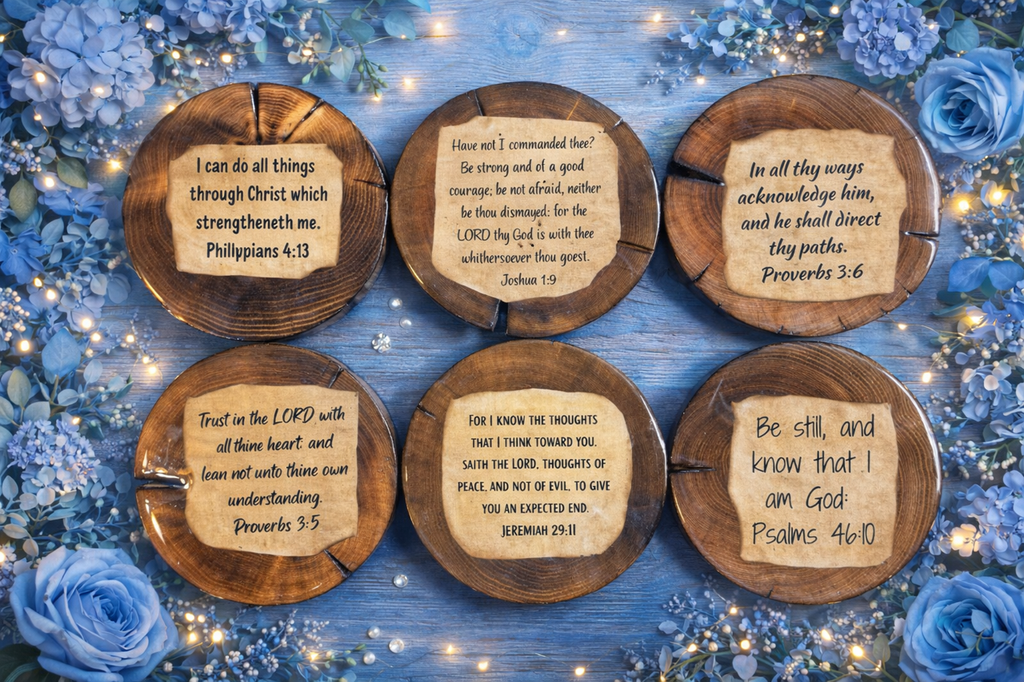 I can do all things
through Christ which
strengtheneth me.
Phillypians 4:13
Have not I commanded thee?
Be strong and of a good
courage; be not afraid, neither
be thou dismayed: for the
LORD thy God is with thee
whithersoever thou goest.
Joshua 1:9
In all thy ways
acknowledge him,
and he shall direct
thy paths.
Proverbs 3:6
Trust in the LORD with
all thine heart; and
lean not unto thine own
understanding.
Proverbs 3:5
FOR I KNOW THE THOUGHTS
THAT I THINK TOWARD YOU,
SAITH THE LORD, THOUGHTS OF
PEACE, AND NOT OF EVIL, TO GIVE
YOU AN EXPECTED END.
JEREMIAH 29:11
Be still, and
know that I
am God:
Psalms 46:10